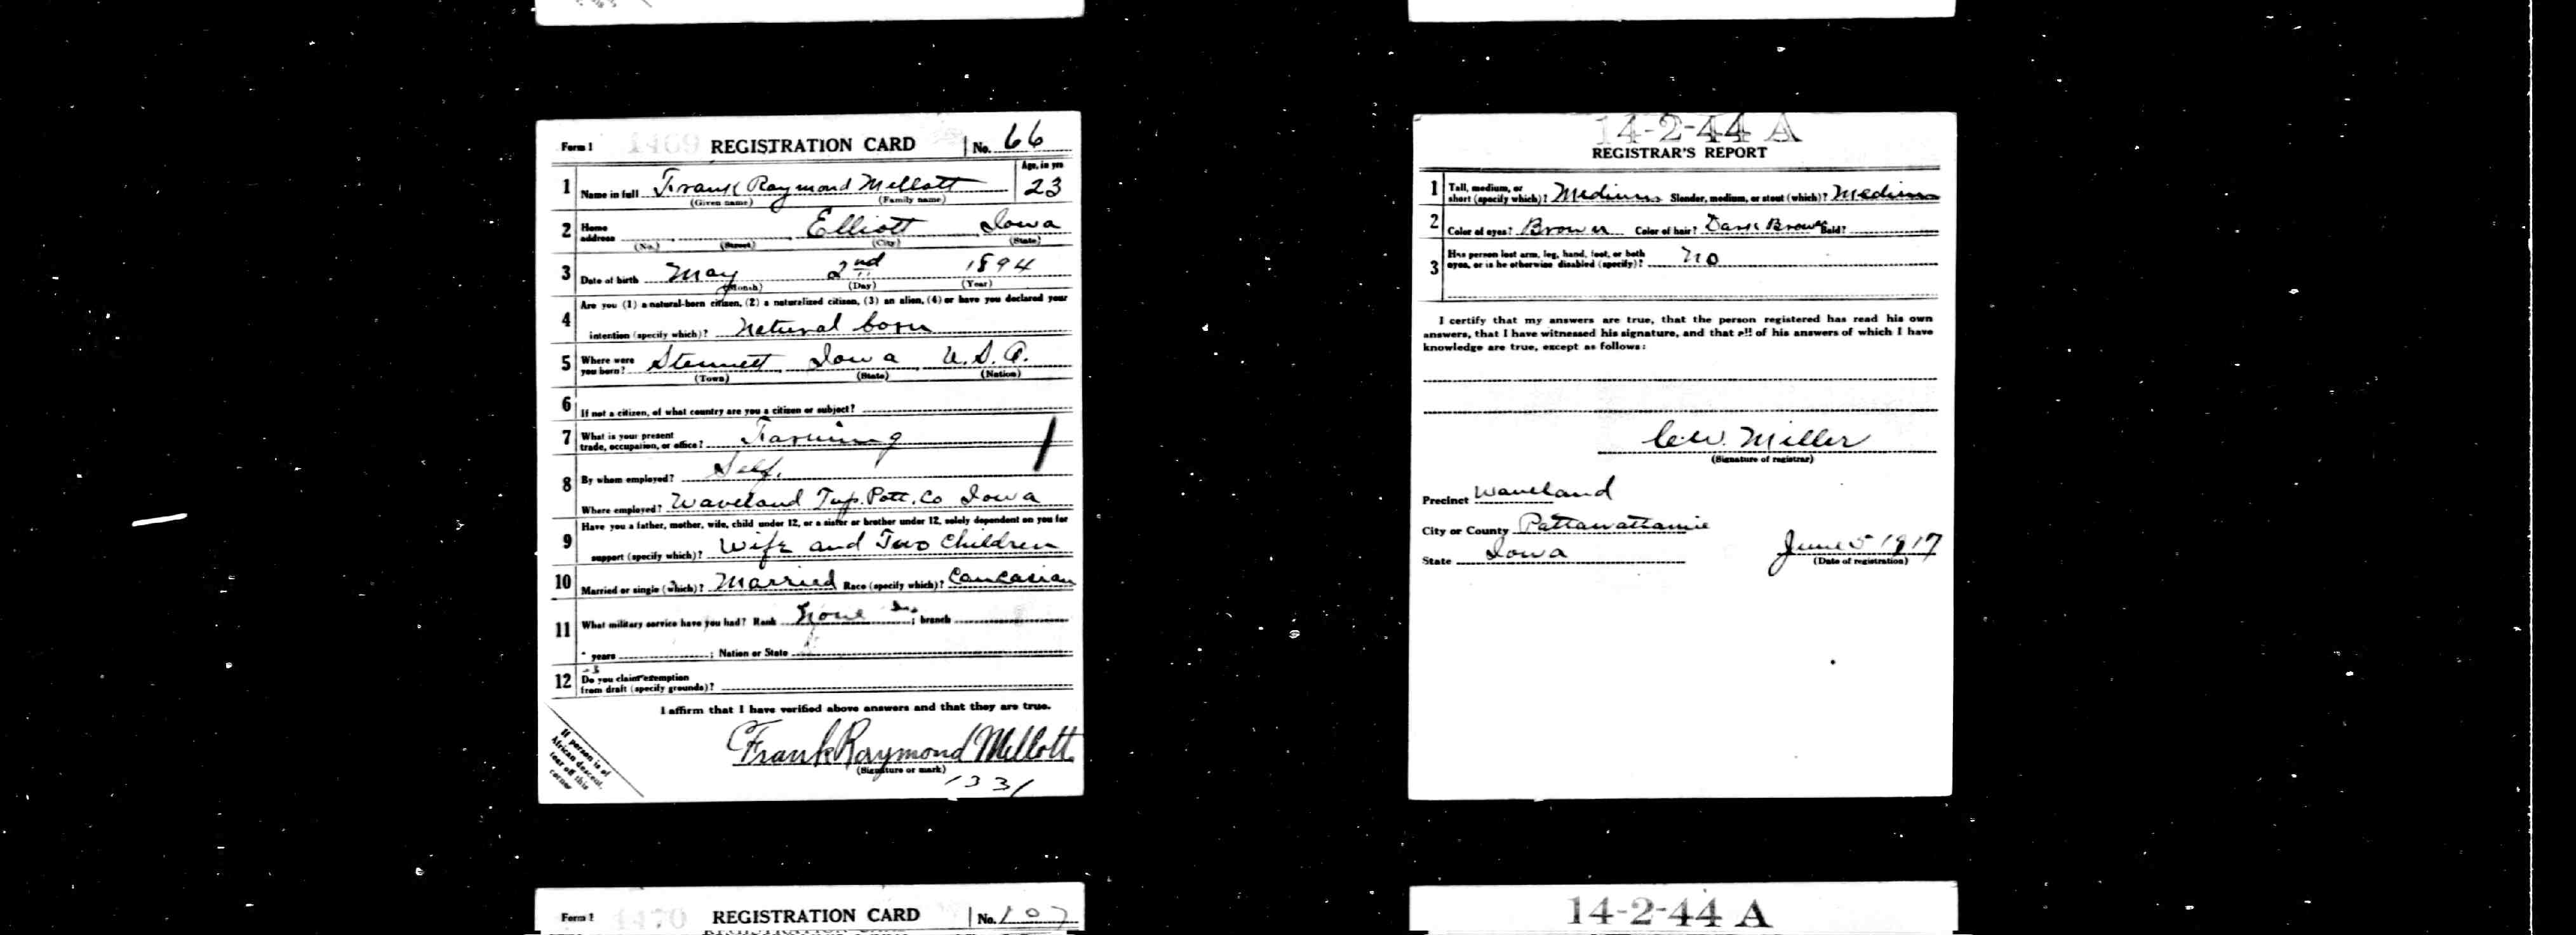 Form 1 1469 REGISTRATION CARD No. 66
1 Name in full Frank Raymond Mellott Age, in yrs 23
(Given name) (Family name)
2 Home address Elliott Iowa
(No.) (Street) (City) (State)
3 Date of birth May 2nd 1894
(Month) (Day) (Year)
4 Are you (1) a natural-born citizen, (2) a naturalized citizen, (3) an alien, (4) or have you declared your
intention (specify which)? Natural born
5 Where were you born? Stennett Iowa U.S.A.
(Town) (State) (Nation)
6 If not a citizen, of what country are you a citizen or subject?
7 What is your present trade, occupation, or office? Farming
8 By whom employed? Self.
Where employed? Waveland Twp. Pott. Co Iowa
9 Have you a father, mother, wife, child under 12, or a sister or brother under 12, solely dependent on you for
support (specify which)? Wife and Two Children
10 Married or single (which)? Married Race (specify which)? Caucasian
11 What military service have you had? Rank None ; branch
years ; Nation or State
12 Do you claim exemption
from draft (specify grounds)?
I affirm that I have verified above answers and that they are true.
Frank Raymond Mellott
(Signature or mark)
1331
If person is of
African descent,
tear off this
corner
14-2-44 A
REGISTRAR'S REPORT
1 Tall, medium, or short (specify which)? Medium Slender, medium, or stout (which)? Medium
2 Color of eyes? Brown Color of hair? Dark Brown Bald?
3 Has person lost arm, leg, hand, foot, or both
eyes, or is he otherwise disabled (specify)? No
I certify that my answers are true, that the person registered has read his own
answers, that I have witnessed his signature, and that all of his answers of which I have
knowledge are true, except as follows:
C.W. Miller
(Signature of registrar)
Precinct Waveland
City or County Pattawattamie
State Iowa June 5 1917
(Date of registration)
Form 1 1470 REGISTRATION CARD No. 107
14-2-44 A